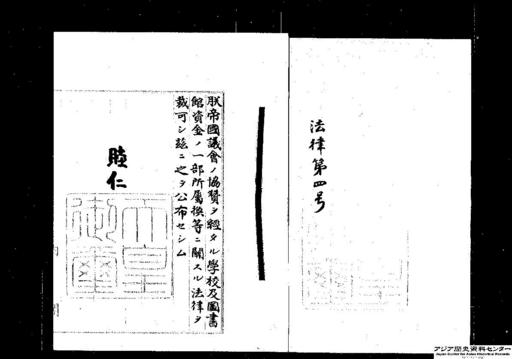 法律第四号
朕帝國議會ノ協賛ヲ經タル學校及圖書
館資金ノ一部所屬換等ニ關スル法律ヲ
裁可シ茲ニ之ヲ公布セシム
睦仁
天皇
御璽
アジア歴史資料センター
Japan Center for Asian Historical Records